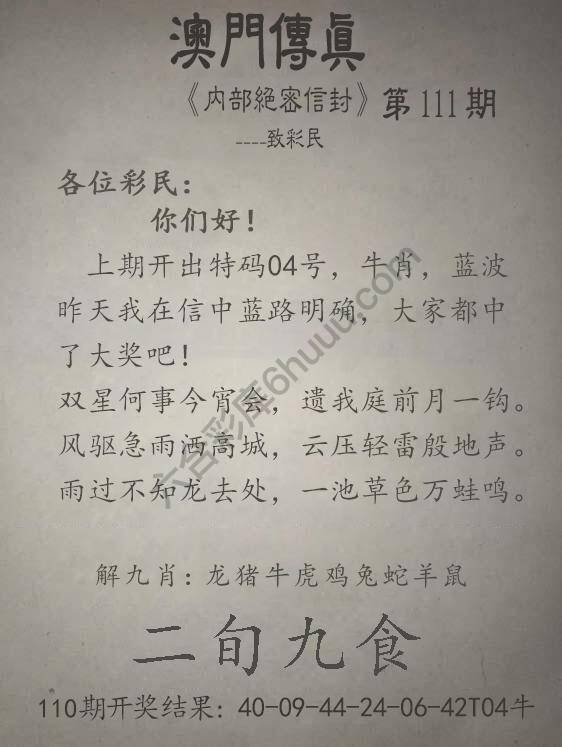 澳門傳真
《内部絕密信封》第111期
----致彩民
各位彩民：
你们好！
上期开出特码04号，牛肖，蓝波
昨天我在信中蓝路明确，大家都中
了大奖吧！
双星何事今宵会，遗我庭前月一钩。
风驱急雨洒高城，云压轻雷殷地声。
雨过不知龙去处，一池草色万蛙鸣。
解九肖：龙猪牛虎鸡兔蛇羊鼠
二旬九食
110期开奖结果：40-09-44-24-06-42T04牛
六合彩库6huuu.com